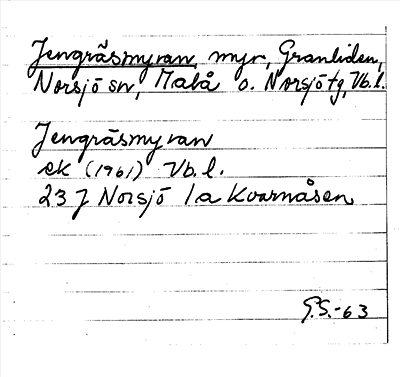 Jengräsmyran, myr, Granliden,
Norsjö sn, Malå o. Norsjö tg, Vb.l.
Jengräsmyran
ek (1961) Vb.l.
23 J Norsjö 1a Kvarnåsen
G.S.-63